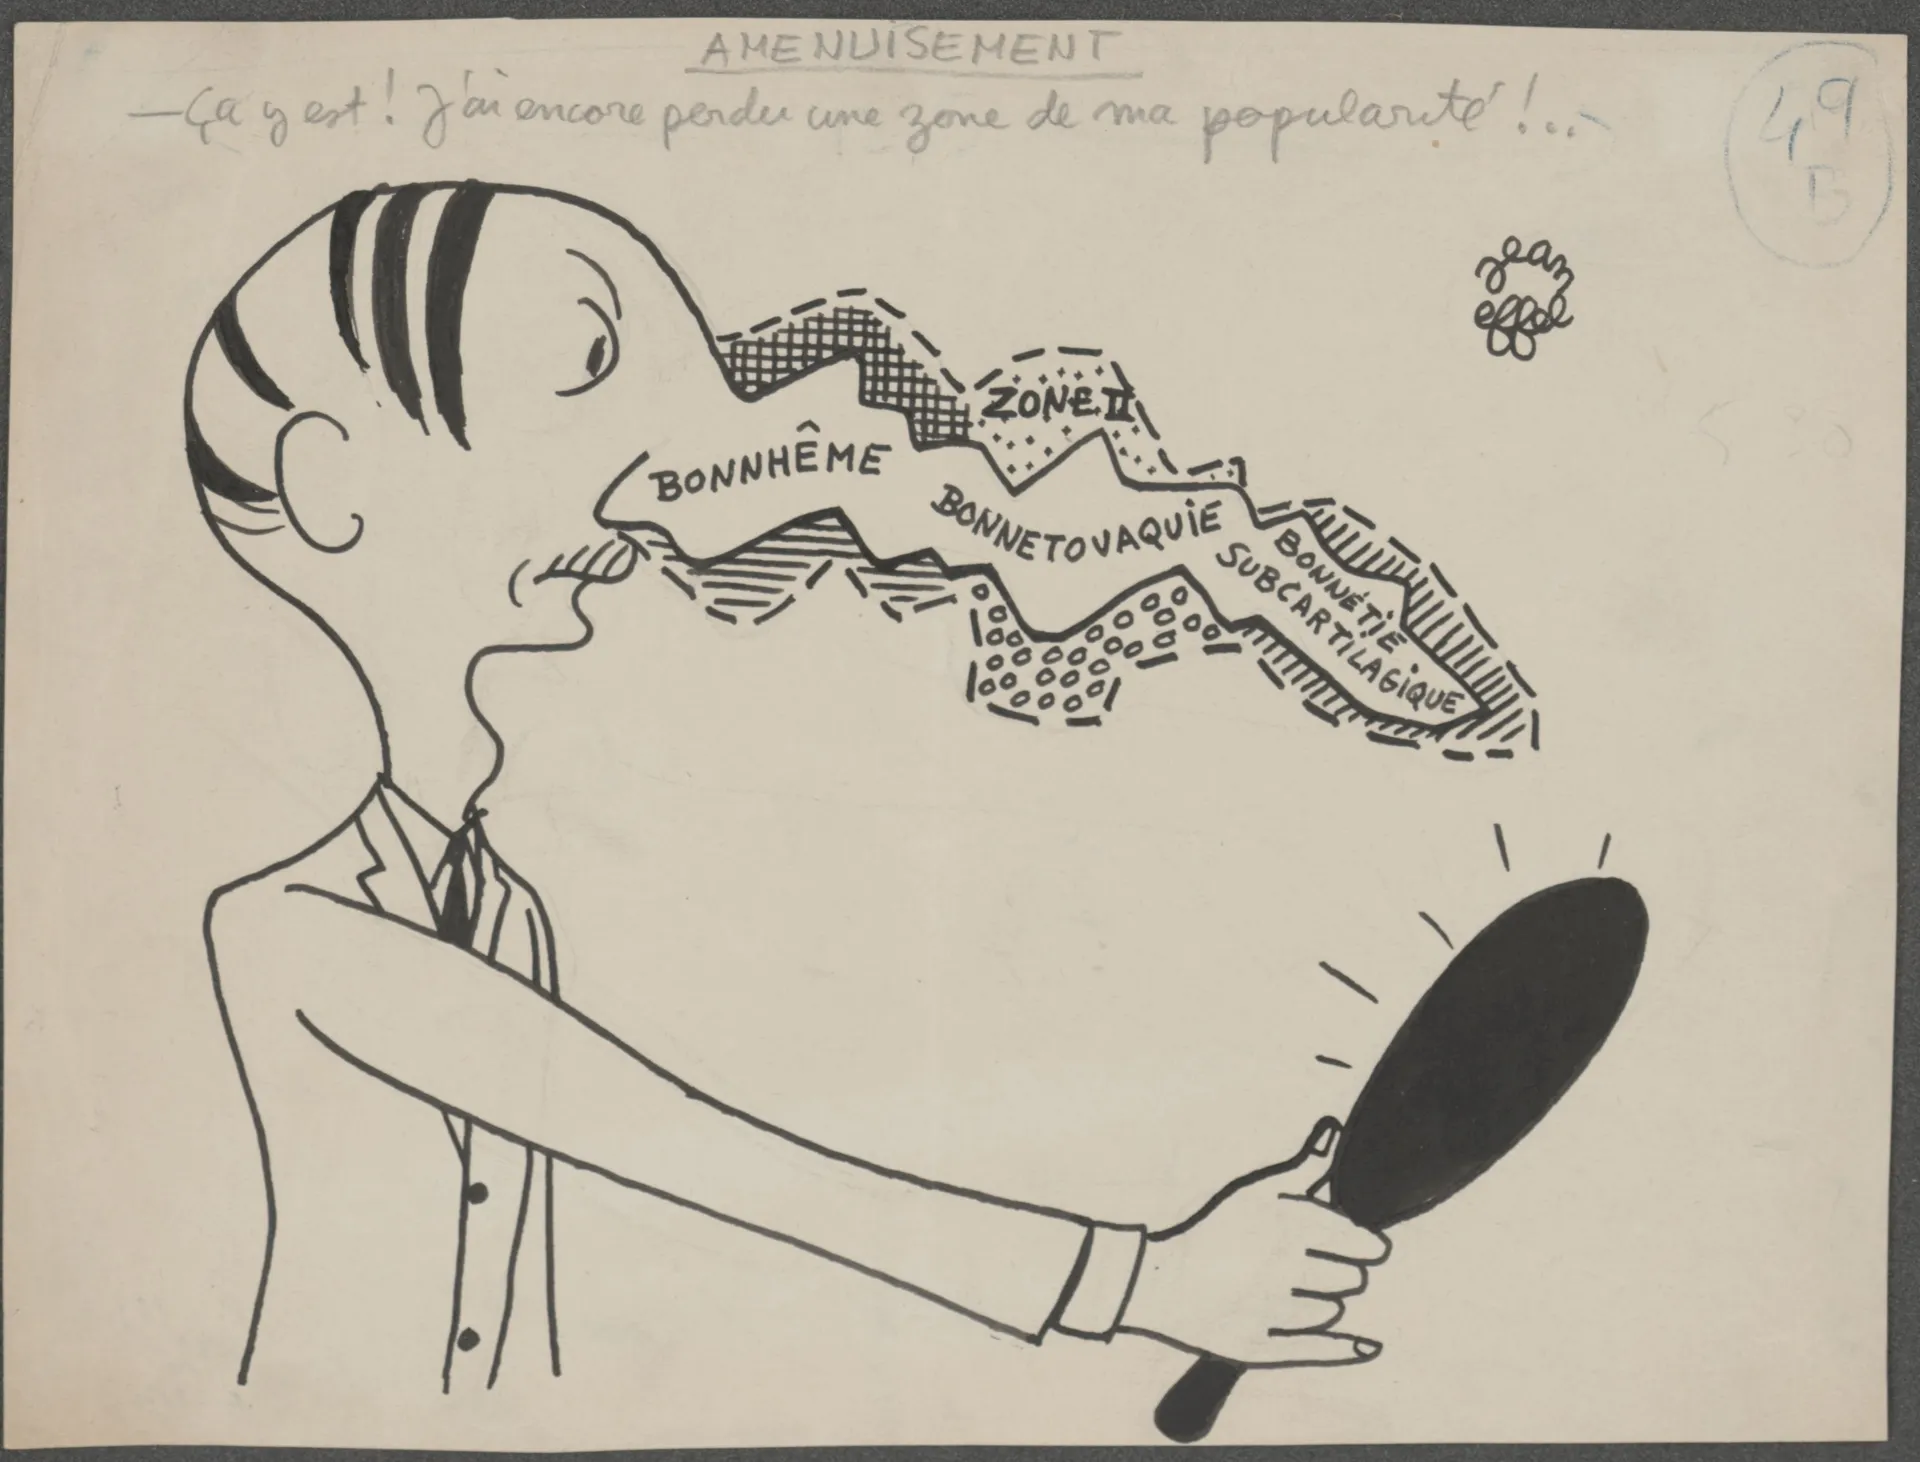 AMENUISEMENT
— Ça y est ! J'ai encore perdu une zone de ma popularité !...
49
B
jean
effel
ZONE II
BONNHÊME
BONNETOVAQUIE
BONNÉTIE
SUBCARTILAGIQUE